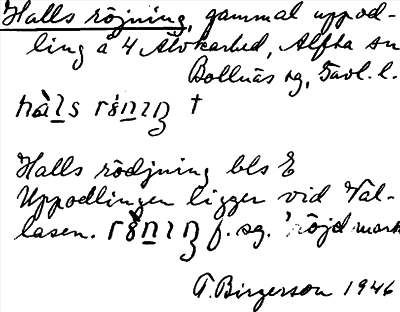 Halls röjning, gammal uppod-
ling å 4 Älvkarhed, Alfta sn
Bollnäs sg, Gävl. l.
hàls rö̀nıŋ †
Halls rödjning bls E
Uppodlingen ligger vid Val-
lasen. rö̀nıŋ f. sg. 'röjd mark
T. Birgerson 1946